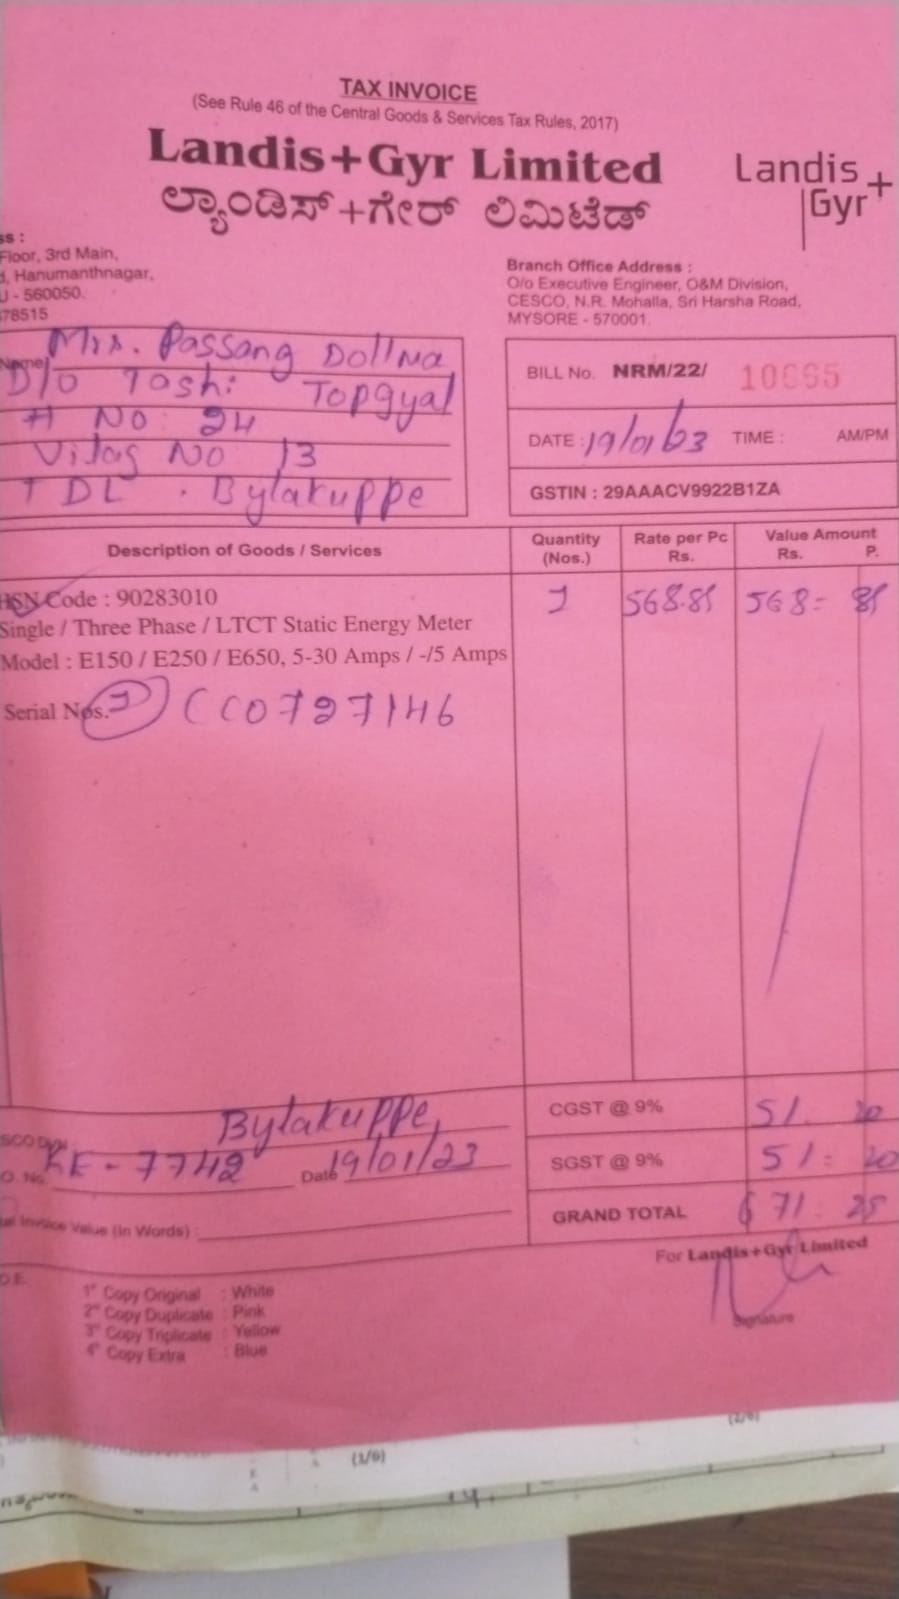 TAX INVOICE
(See Rule 46 of the Central Goods & Services Tax Rules, 2017)
Landis+Gyr Limited
ಲ್ಯಾಂಡಿಸ್+ಗೇರ್ ಲಿಮಿಟೆಡ್
Landis
Gyr+
ss :
Floor, 3rd Main,
d, Hanumanthnagar,
U - 560050.
78515
Branch Office Address :
O/o Executive Engineer, O&M Division,
CESCO, N.R. Mohalla, Sri Harsha Road,
MYSORE - 570001.
Name Mrs. Passang Dollma
D/O Tashi Topgyal
# No: 24
Vilag No 13
TDL . Bylakuppe
BILL No. NRM/22/ 10665
DATE : 19/01/23 TIME : AM/PM
GSTIN : 29AAACV9922B1ZA
Description of Goods / Services
Quantity (Nos.)
Rate per Pc Rs.
Value Amount Rs. P.
HSN Code : 90283010
1 568.85 568= 85
Single / Three Phase / LTCT Static Energy Meter
Model : E150 / E250 / E650, 5-30 Amps / -/5 Amps
Serial Nos. 1) CCO727146
CGST @ 9% 51. 20
SGST @ 9% 51= 20
GRAND TOTAL 671. 25
Bylakuppe
KE-7742 Date 19/01/23
Invoice Value (In Words) :
For Landis+Gyr Limited
Signature
1st Copy Original : White
2nd Copy Duplicate : Pink
3rd Copy Triplicate : Yellow
4th Copy Extra : Blue
(1/6)
(2/6)